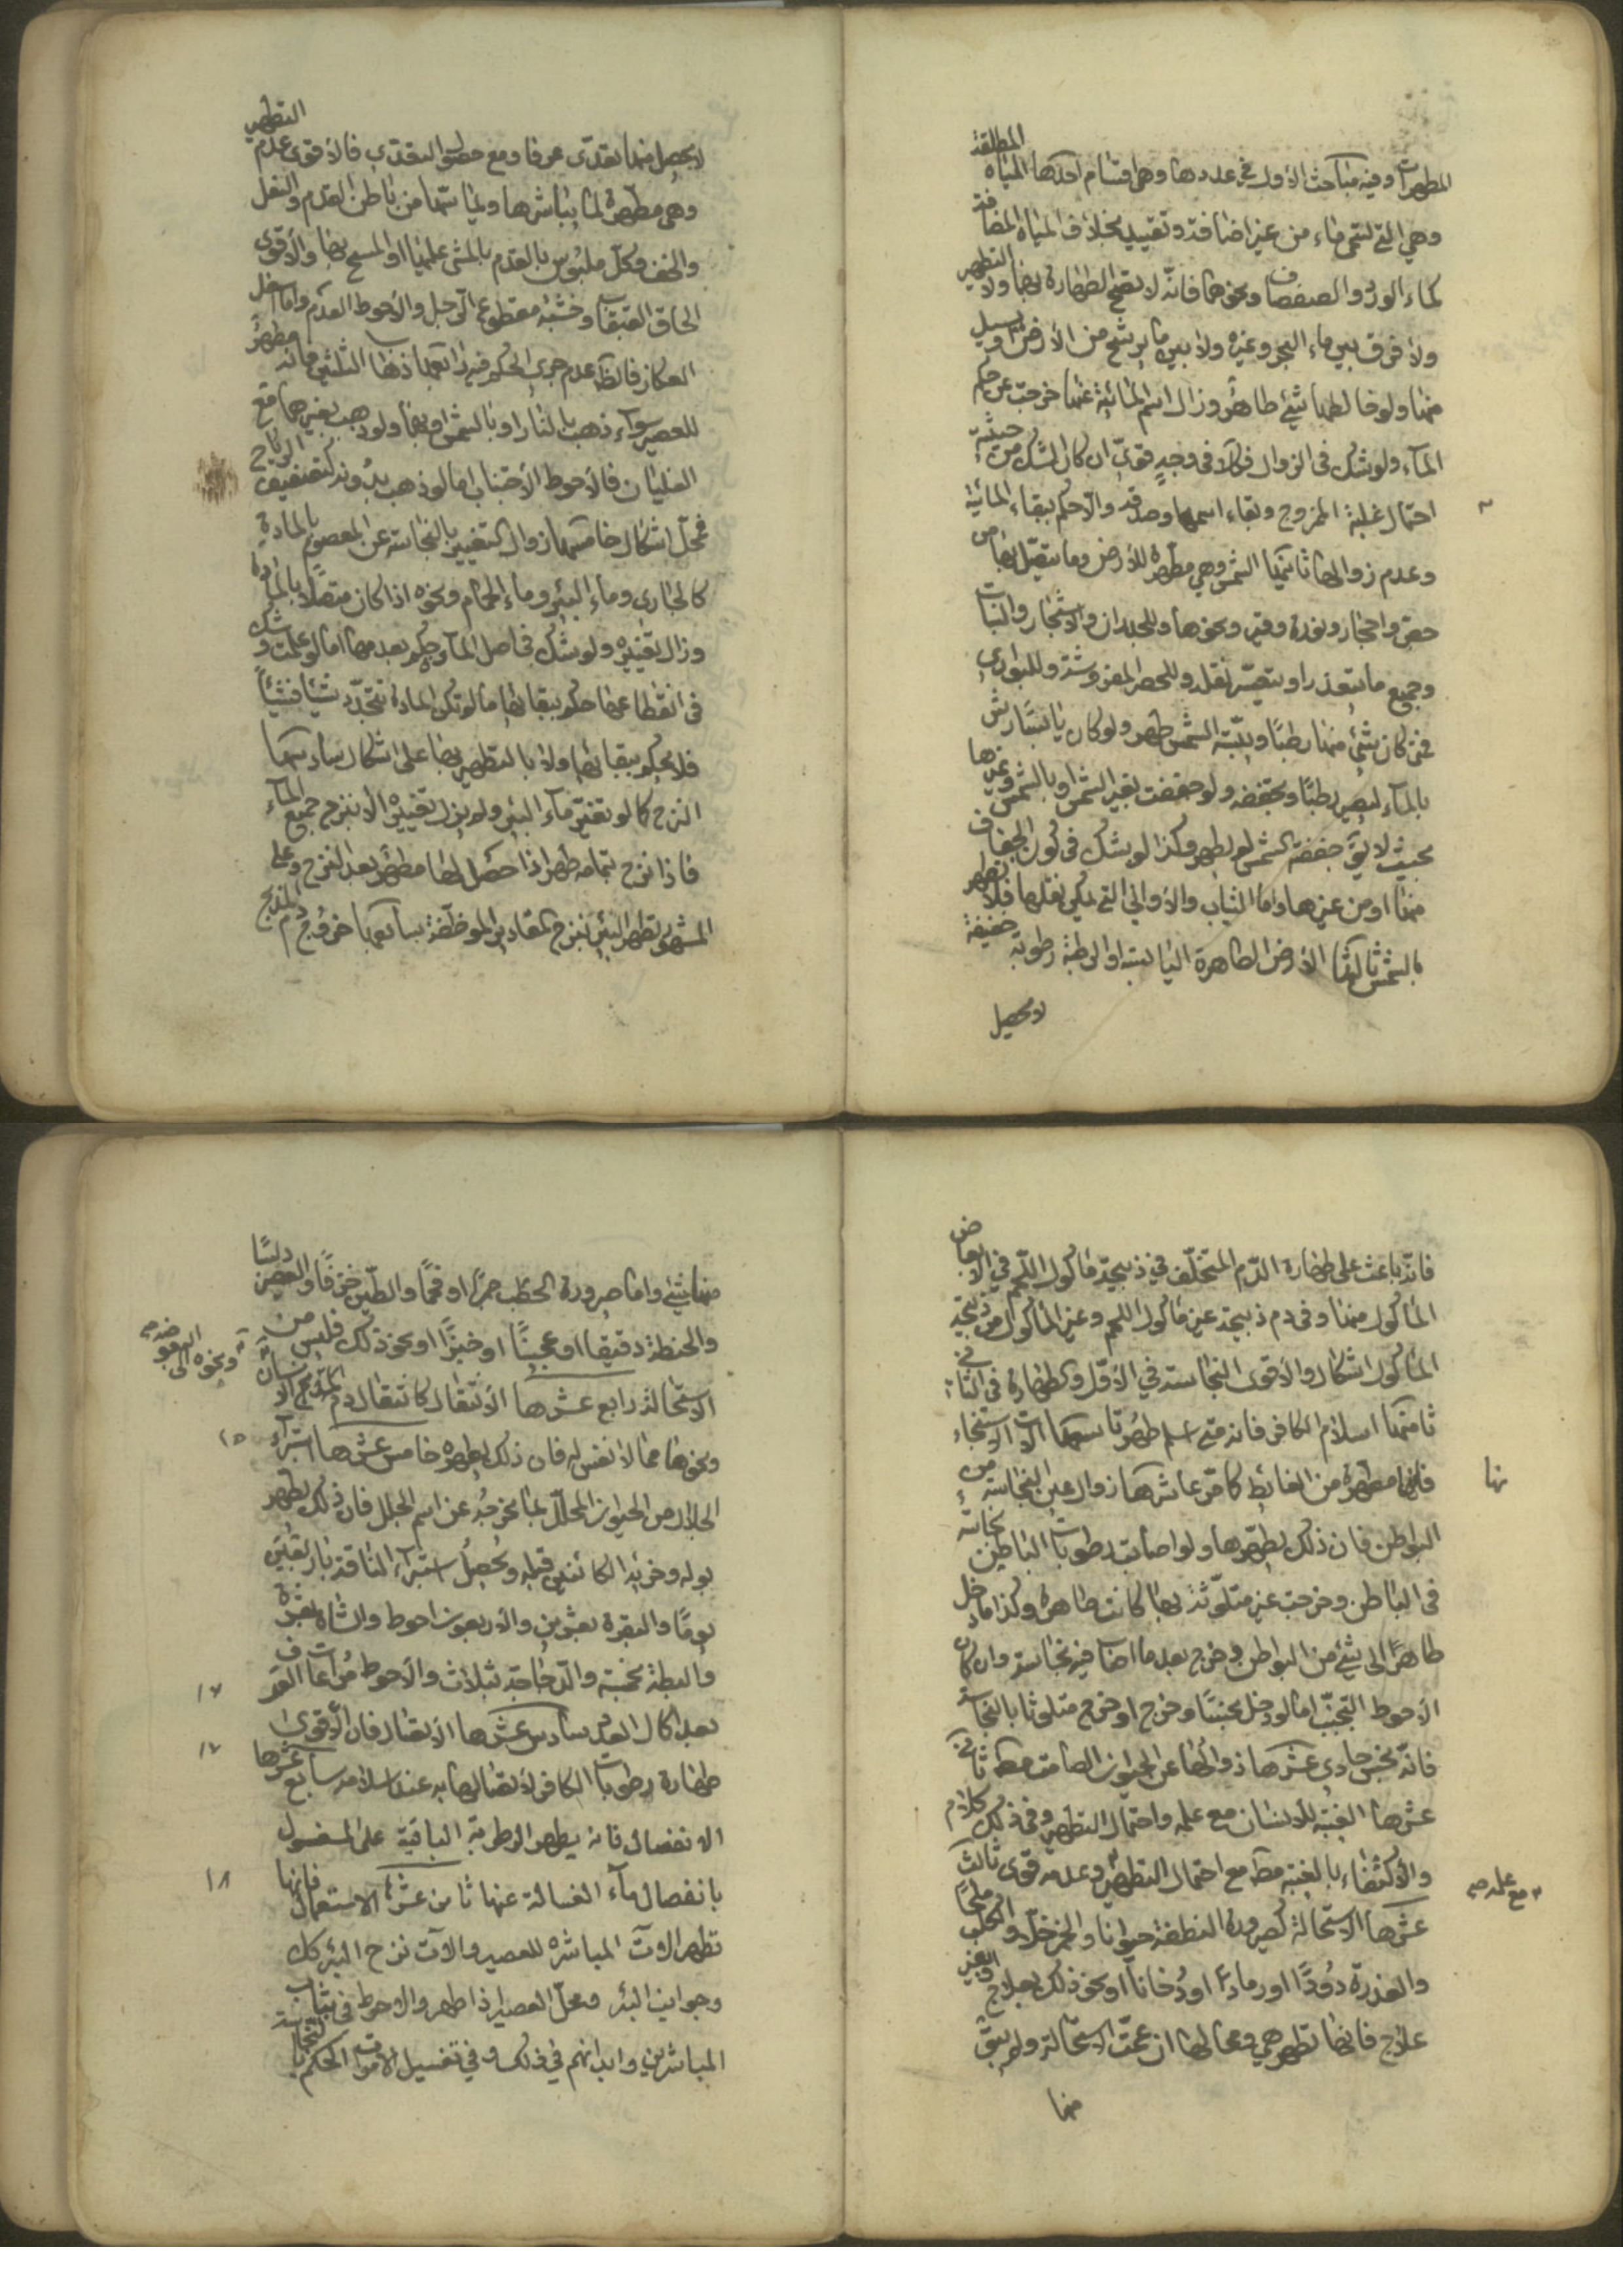 المطهرات وفيه مباحث الأول في عددها وهي اقسام احدها المياه المطلقة
وهي التي تسمى ماء من غير اضافة وتقييد بخلاف المياه المضافة
كماء الورد والصفصاف ونحوهما فانه لا تصح الطهارة بها ولا التطهير
ولا فرق بين ماء البحر وغيره ولا بين ما يرشح من الأرض او يسيل
منها ولو خالطها شيء طاهر وزال اسم المائية عنها خرجت عن حكم
الماء ولو شك في الزوال فكلا في وجه قوي ان كان الشك من حيثية
احتمال غلبة الممزوج وبقاء اسمها وصدقه والا حكم ببقاء المائية
وعدم زوالها ثانيها الشمس وهي مطهرة للأرض وما يتصل بها من
حصى واحجار ونورة وقير ونحوها وللجدران والاشجار والنبات
وجميع ما يتعذر او يتعسر نقله وللحصر المفروشة وللبواري
فمتى كان شيء منها رطبا ويبسته الشمس طهر ولو كان يابسا رش
بالماء ليصير رطبا وتجففه ولو جففت بغير الشمس او بالشمس وغيرها
بحيث لا يقوى جففته الشمس لم يطهر وكذا لو شك في كون الجفاف
منها او من غيرها واما الثياب والأواني التي يمكن نقلها فلا تطهر
بالشمس ثالثها الأرض الطاهرة اليابسة او الرطبة رطوبة خفيفة
لا يحصل
لا يحصل منها تعدي عرفا ومع حصول التعدي فالاقوى عدم التطهير
وهي مطهرة لما يباشرها ويماسها من باطن القدم والنعل
والخف وكل ملبوس بالقدم بالمشي عليها او المسح بها والأقوى
الحاق القبقاب وخشبة مقطوع الرجل والأحوط العدم واما اسفل
العكاز فالظاهر عدم جري الحكم فيه رابعها ذهاب الثلثين فانه مطهر
للعصير سواء ذهب بالنار او بالشمس او بهما ولو ذهب بغيرهما مع
الغليان فالأحوط الأجتناب اما لو ذهب بدونه كتجفيف الرياح
فمحل اشكال خامسها زوال التغيير بالنجاسة عن المعصوم بالمادة
كالجاري وماء البئر وماء الحمام ونحوه اذا كان متصلا بالمادة
وزال تغييره ولو شك في اصل المادة حكم بعدمها اما لو علمت وشك
في انقطاعها حكم ببقائها ما لم تكن المادة تتجدد شيئا فشيئاً
فلا يحكم ببقائها ولا بالتطهير بها على اشكال سادسها
النزح كما لو تغير ماء البئر ولم يزل تغييره الا بنزح جميع الماء
فاذا نزح بتمامه طهر اذا حصل لها مطهر بعد النزح وعلى
المشهور تطهر البئر بنزح المقادير الموظفة سابعها خروج دم المذبح
فانه باعث على طهارة الدم المتخلف في ذبيحة مأكول اللحم في الأبعاض
المأكول منها وفي دم ذبيحة غير مأكول اللحم وغير المأكول من ذبيحة
المأكول اشكال والأقوى النجاسة في الأول والطهارة في الثاني
ثامنها اسلام الكافر فانه متى اسلم طهر تاسعها الات الاستنجاء
فانها مطهرة من الغائط كما مر عاشرها زوال عين النجاسة من
البواطن فان ذلك يطهرها ولو اصابت رطوبات الباطن نجاسة
في الباطن وخرجت غير متلوثة بها كانت طاهرة وكذا ما دخل
طاهرا الى شيء من البواطن وخرج بعد ما اصاب فيه نجاسة وان كان
الأحوط التجنب اما لو دخل نجسا وخرج او خرج متلوثا بالنجاسة
فانه نجس حادي عشرها زوالها عن الحيوان الصامت مطه ثاني
عشرها الغيبة للأنسان مع علمه واحتمال التطهير وفي ذلك كلام
والأكتفاء بالغيبة مطه مع احتمال التطهير وعدمه قوى ثالث
مع علمه صح
عشرها الاستحالة كصيرورة النطفة حيوانا والخمر خلا والكلب ملحا
والعذرة دودا او رمادا او دخانا او نحو ذلك بعلاج وبغير
علاج فانها تطهر هي ومحالها ان عمت الاستحالة ولم يبق
منها
منها شيء واما صيرورة الحطب جمرا او فحما والطين خزفا والعصير دبسا
والحنطة دقيقا او عجينا او خبزا او نحو ذلك فليس من
الاستحالة رابع عشرها الأنتقال كانتقال دم الانسان
ونحوه الى البعوضة صح
ونحوها مما لا نفس له فان ذلك يطهره خامس عشرها استبراء
١٥
الجلال من الحيوان المحلل بما يخرجه عن اسم الجلل فان ذلك يطهر
بوله وخرئه الكائنين قبله ويحصل استبراء الناقة باربعين
يوما والبقرة بعشرين والأربعون احوط والشاة بعشرة
والبطة بخمسة والدجاجة بثلاث والأحوط مراعات العرف
١٦
بعد اكمال العدد سادس عشرها الأتصال فان الأقوى
طهارة رطوبات الكافر لاتصالها به عند اسلامه سابع عشرها
١٧
الانفصال فانه يطهر الرطوبة الباقية على المغسول
بانفصال ماء الغسالة عنها ثامن عشرها الاستعمال فانها
١٨
تطهر الات المباشرة للعصير والات نزح البئر كل
وجوانب البئر ومحل العصير اذا طهر والاحوط في ثياب
المباشرين وابدانهم في ذلك وفي تغسيل الاموات الحكم بالنجاسة